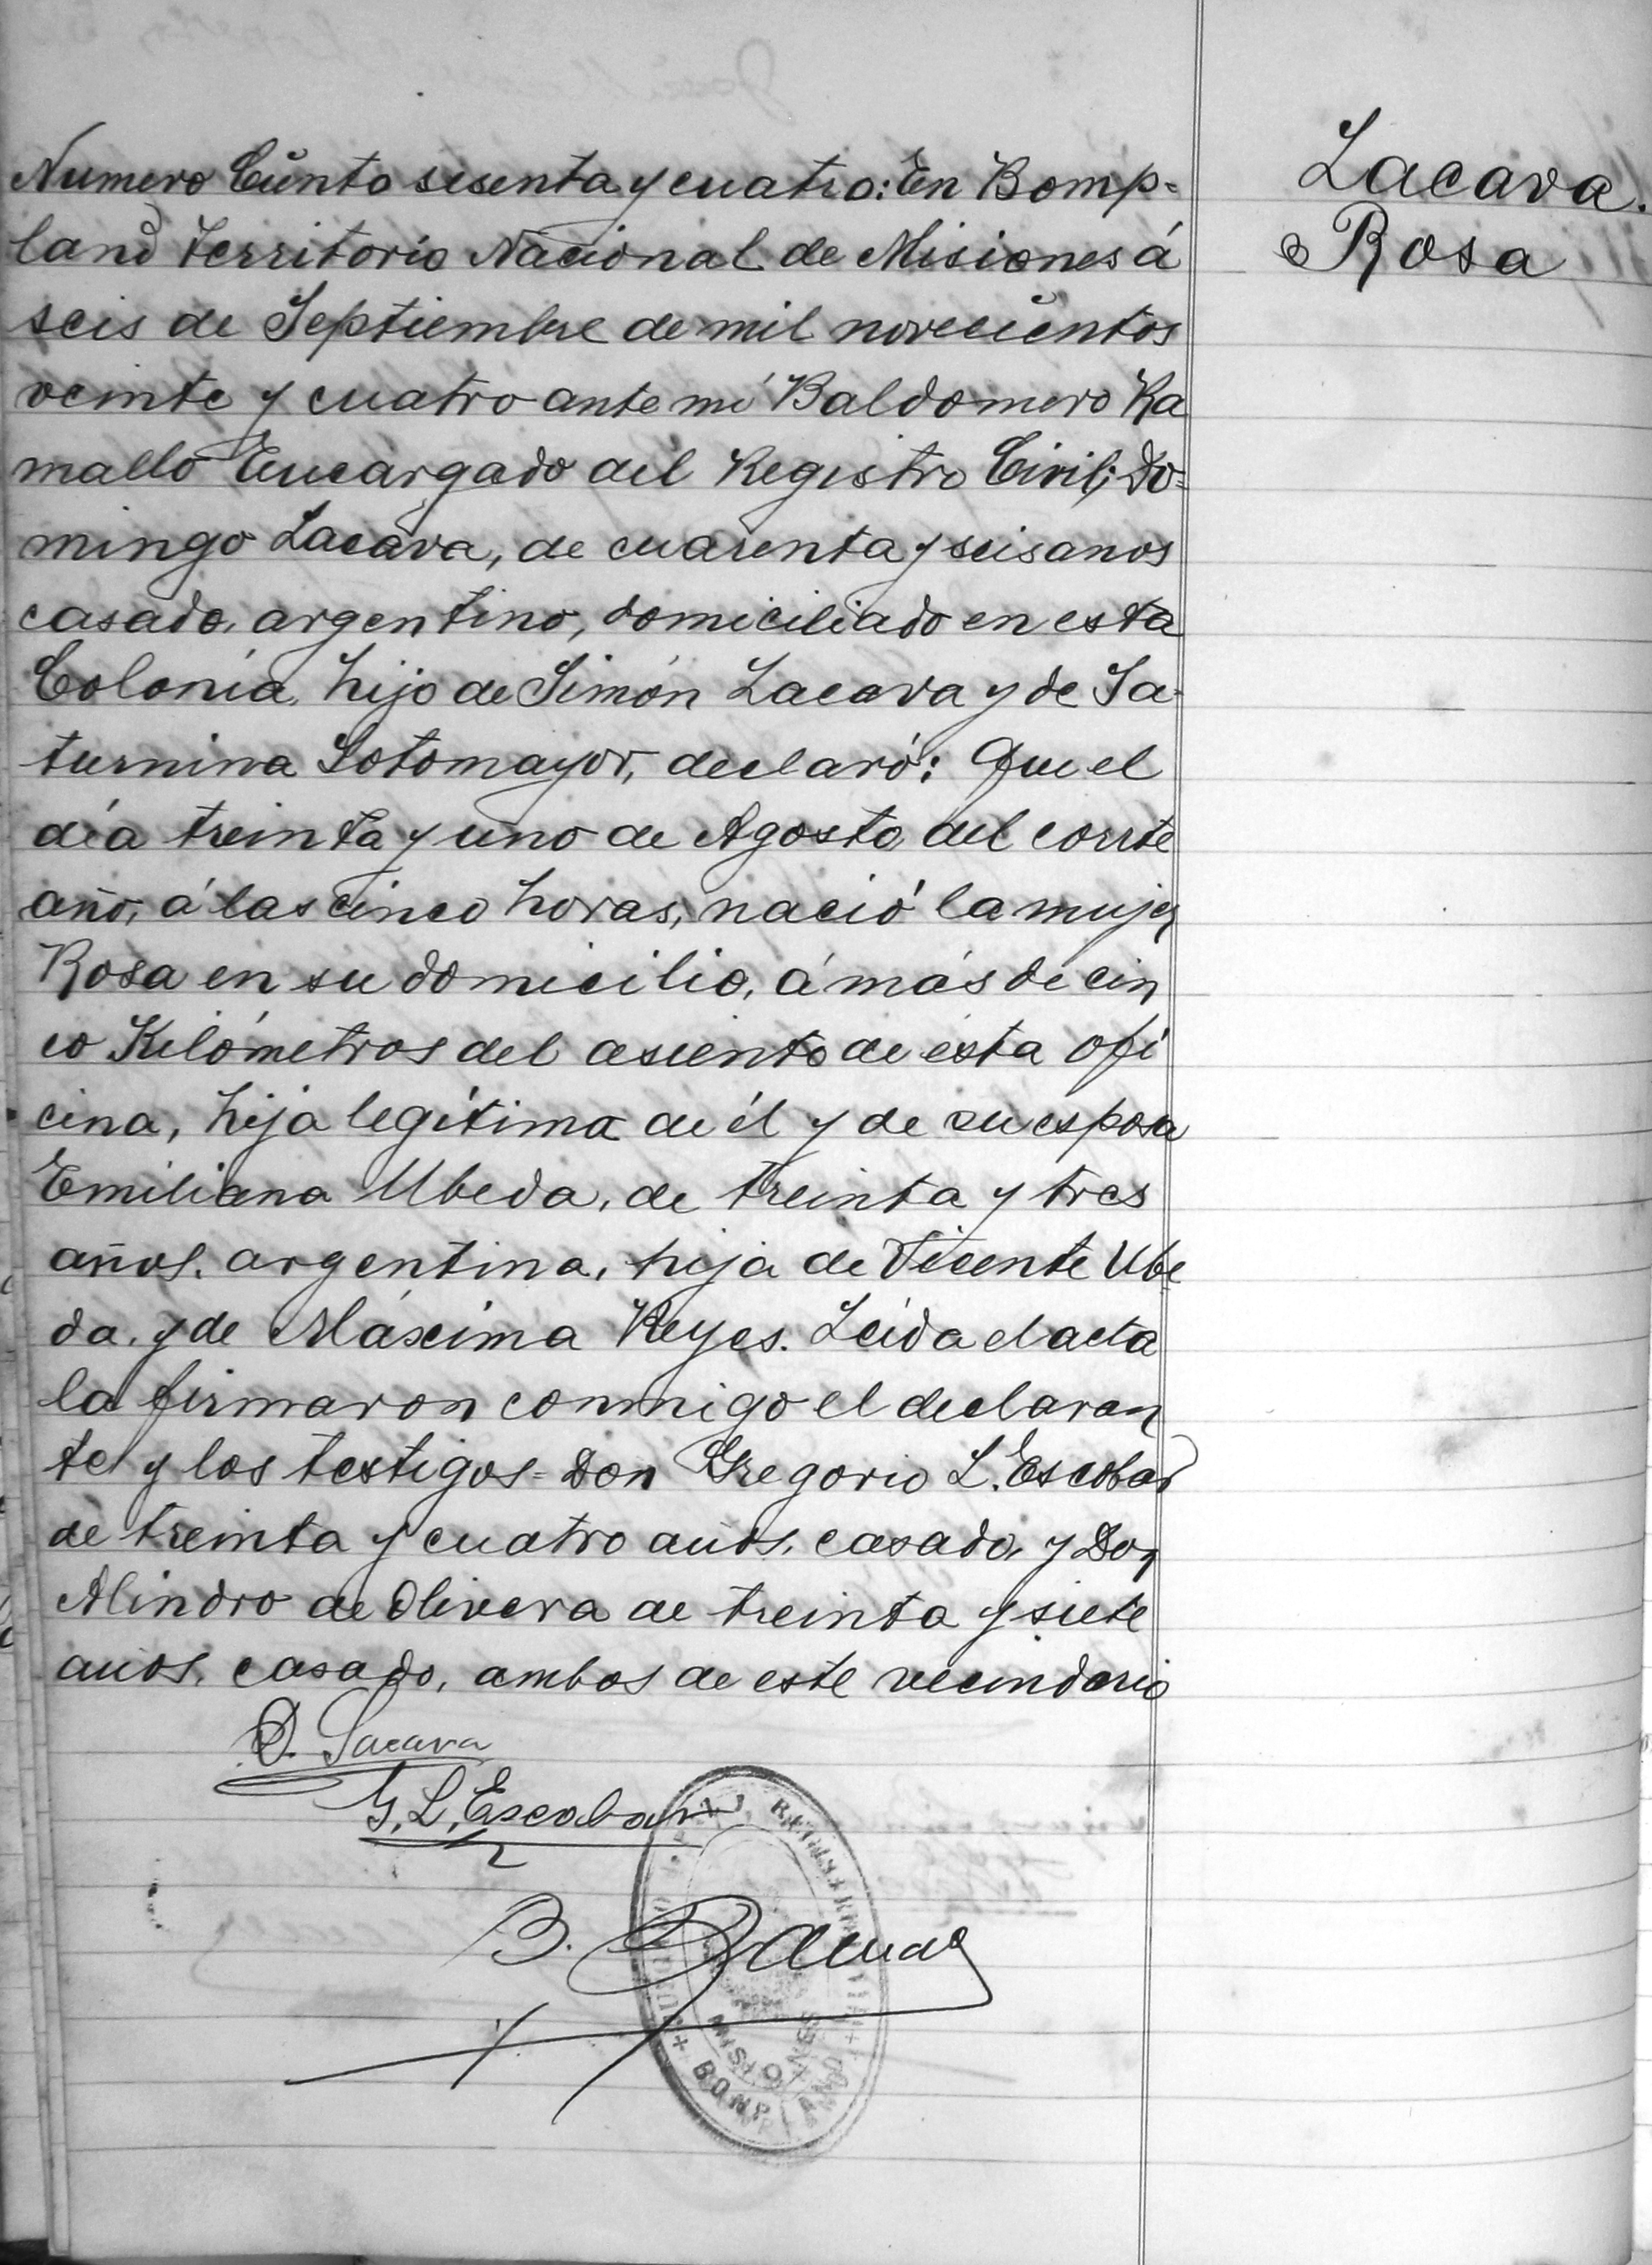 Lacava.
Rosa
Numero Ciento sesenta y cuatro: En Bomp-
land Territorio Nacional de Misiones á
seis de Septiembre de mil novecientos
veinte y cuatro ante mí Baldomero Ra
mallo Encargado del Registro Civil; Do-
mingo Lacava, de cuarenta y seis anos
casado, argentino, domiciliado en esta
Colonia, hijo de Simón Lacava y de Sa-
turnina Sotomayor, declaró: Que el
día treinta y uno de Agosto del corrte
año, á las cinco horas, nació la mujer
Rosa en su domicilio, á más de cin
co Kilómetros del asiento de esta ofi
cina, hija legítima de él y de su esposa
Emiliana Ubeda, de treinta y tres
años, argentina, hija de Vicente Ube
da, y de Máxima Reyes. Leida el acta
la firmaron conmigo el declaran
te y los testigos = Don Gregorio L. Escobar
de treinta y cuatro años, casado, y Don
Alindro de Olivera de treinta y siete
años, casado, ambos de este vecindario
D. Lacava
G. L. Escobar
B.
MISIONES
BONPLAND